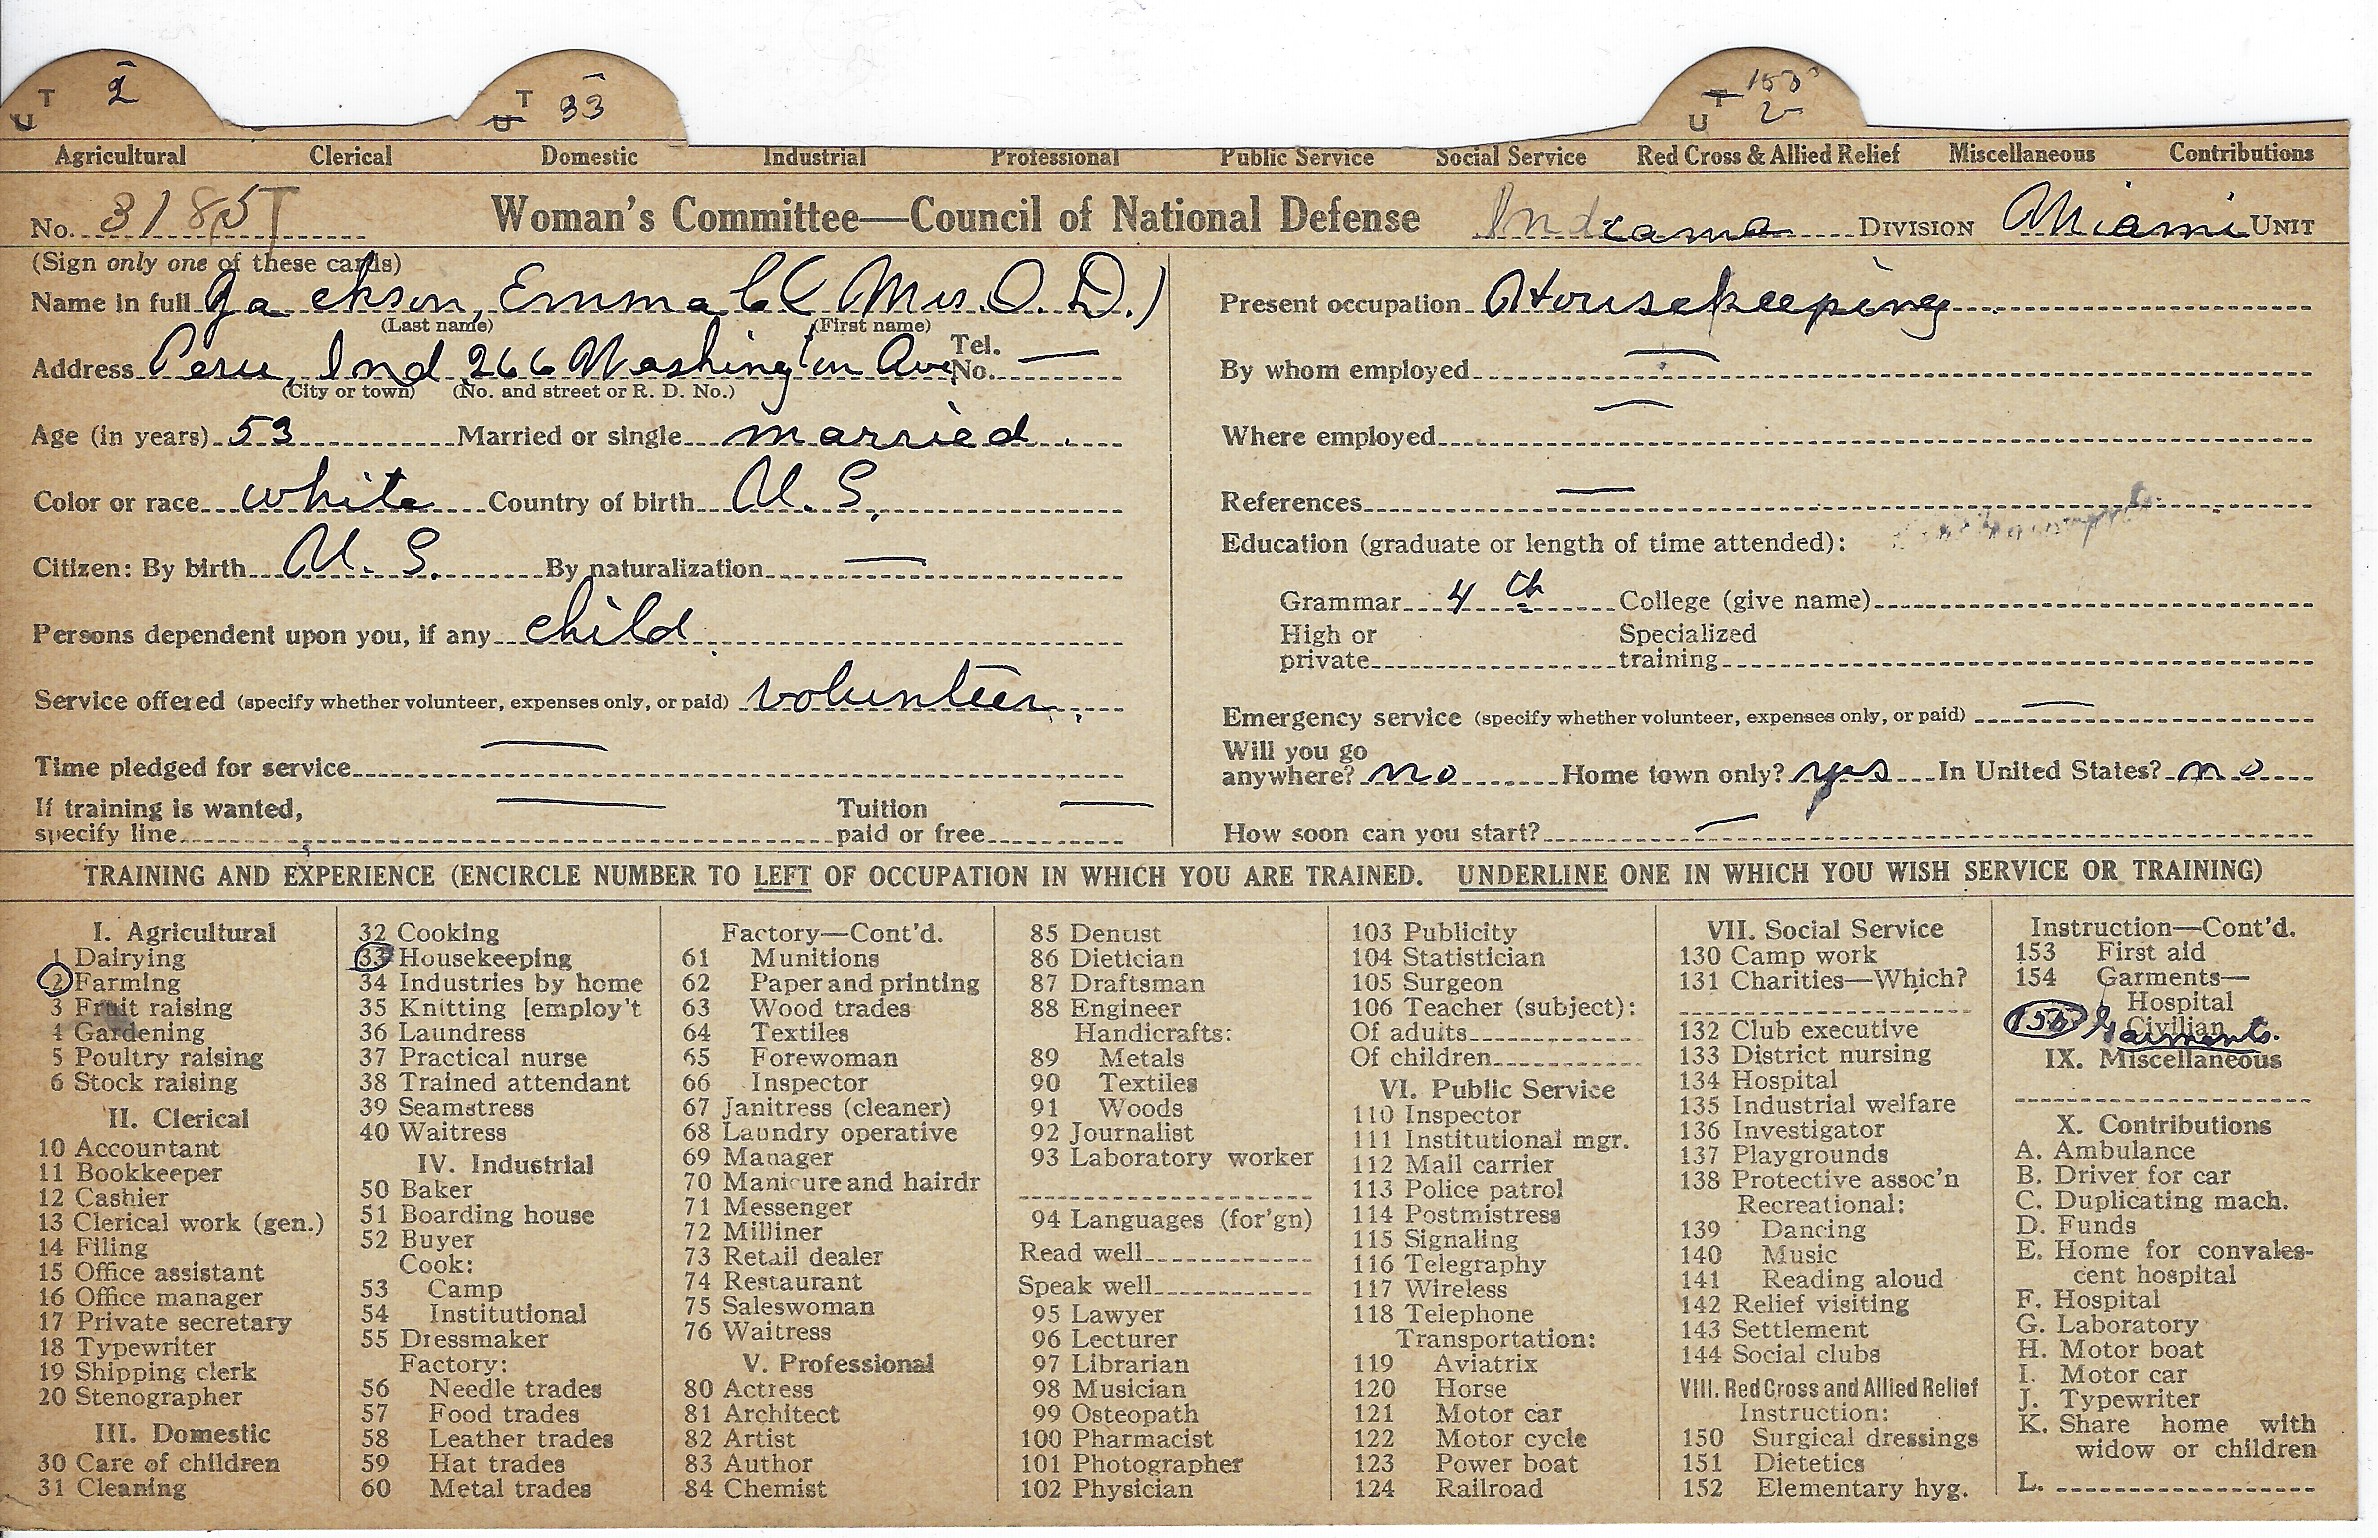 T 2
U
T 33
U
T 155
U 2
Agricultural Clerical Domestic Industrial Professional Public Service Social Service Red Cross & Allied Relief Miscellaneous Contributions
No. 3185T Woman's Committee—Council of National Defense Indiana DIVISION Miami UNIT
(Sign only one of these cards)
Name in full Jackson, Emma C (Mrs. O. D.)
(Last name) (First name)
Address Peru, Ind 266 Washington Ave Tel. No. —
(City or town) (No. and street or R. D. No.)
Age (in years) 53 Married or single married.
Color or race white Country of birth U. S.
Citizen: By birth U. S. By naturalization —
Persons dependent upon you, if any child
Service offered (specify whether volunteer, expenses only, or paid) volunteer.
Time pledged for service —
If training is wanted,
specify line — Tuition
paid or free —
Present occupation Housekeeping
By whom employed —
Where employed —
References —
Education (graduate or length of time attended):
Grammar 4th College (give name)
High or
private Specialized
training
Emergency service (specify whether volunteer, expenses only, or paid) —
Will you go
anywhere? no Home town only? yes In United States? no
How soon can you start? —
TRAINING AND EXPERIENCE (ENCIRCLE NUMBER TO LEFT OF OCCUPATION IN WHICH YOU ARE TRAINED. UNDERLINE ONE IN WHICH YOU WISH SERVICE OR TRAINING)
I. Agricultural
1 Dairying
2 Farming
3 Fruit raising
4 Gardening
5 Poultry raising
6 Stock raising
II. Clerical
10 Accountant
11 Bookkeeper
12 Cashier
13 Clerical work (gen.)
14 Filing
15 Office assistant
16 Office manager
17 Private secretary
18 Typewriter
19 Shipping clerk
20 Stenographer
III. Domestic
30 Care of children
31 Cleaning
32 Cooking
33 Housekeeping
34 Industries by home
35 Knitting [employ't
36 Laundress
37 Practical nurse
38 Trained attendant
39 Seamstress
40 Waitress
IV. Industrial
50 Baker
51 Boarding house
52 Buyer
Cook:
53 Camp
54 Institutional
55 Dressmaker
Factory:
56 Needle trades
57 Food trades
58 Leather trades
59 Hat trades
60 Metal trades
Factory—Cont'd.
61 Munitions
62 Paper and printing
63 Wood trades
64 Textiles
65 Forewoman
66 Inspector
67 Janitress (cleaner)
68 Laundry operative
69 Manager
70 Manicure and hairdr
71 Messenger
72 Milliner
73 Retail dealer
74 Restaurant
75 Saleswoman
76 Waitress
V. Professional
80 Actress
81 Architect
82 Artist
83 Author
84 Chemist
85 Dentist
86 Dietician
87 Draftsman
88 Engineer
Handicrafts:
89 Metals
90 Textiles
91 Woods
92 Journalist
93 Laboratory worker
94 Languages (for'gn)
Read well
Speak well
95 Lawyer
96 Lecturer
97 Librarian
98 Musician
99 Osteopath
100 Pharmacist
101 Photographer
102 Physician
103 Publicity
104 Statistician
105 Surgeon
106 Teacher (subject):
Of adults
Of children
VI. Public Service
110 Inspector
111 Institutional mgr.
112 Mail carrier
113 Police patrol
114 Postmistress
115 Signaling
116 Telegraphy
117 Wireless
118 Telephone
Transportation:
119 Aviatrix
120 Horse
121 Motor car
122 Motor cycle
123 Power boat
124 Railroad
VII. Social Service
130 Camp work
131 Charities—Which?
132 Club executive
133 District nursing
134 Hospital
135 Industrial welfare
136 Investigator
137 Playgrounds
138 Protective assoc'n
Recreational:
139 Dancing
140 Music
141 Reading aloud
142 Relief visiting
143 Settlement
144 Social clubs
VIII. Red Cross and Allied Relief
Instruction:
150 Surgical dressings
151 Dietetics
152 Elementary hyg.
Instruction—Cont'd.
153 First aid
154 Garments—
Hospital
Civilian
155 Garments.
IX. Miscellaneous
X. Contributions
A. Ambulance
B. Driver for car
C. Duplicating mach.
D. Funds
E. Home for convales-
cent hospital
F. Hospital
G. Laboratory
H. Motor boat
I. Motor car
J. Typewriter
K. Share home with
widow or children
L.